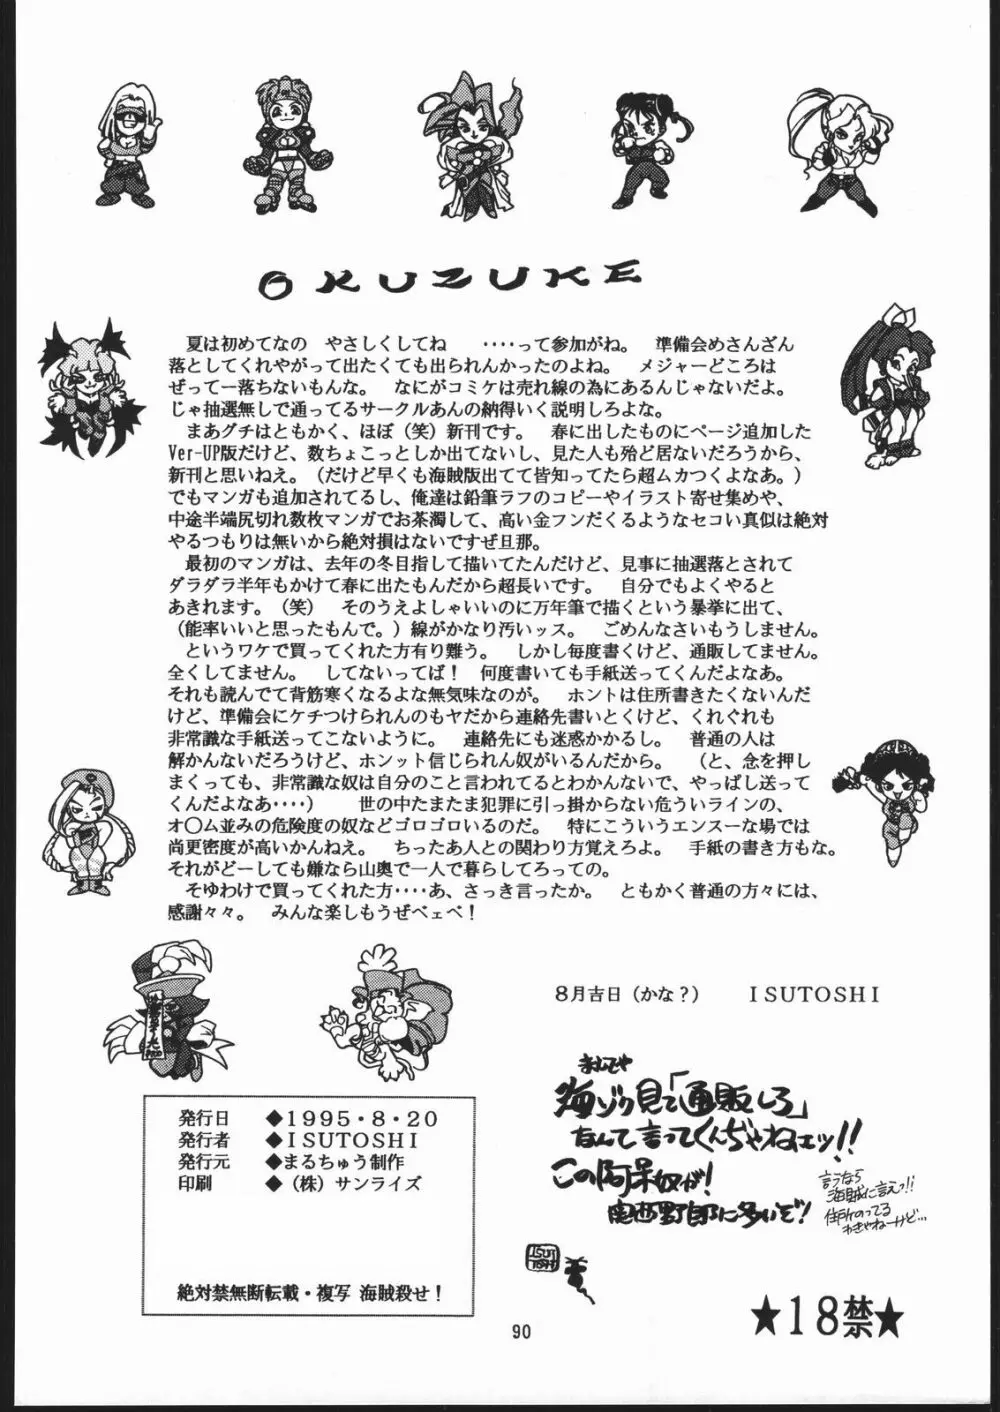 OKUZUKE
夏は初めてなの　やさしくしてね　‥‥って参加がね。　準備会めさんざん
落としてくれやがって出たくても出られんかったのよね。　メジャーどころは
ぜって一落ちないもんな。　なにがコミケは売れ線の為にあるんじゃないだよ。
じゃ抽選無しで通ってるサークルあんの納得いく説明しろよな。
まあグチはともかく、ほぼ（笑）新刊です。　春に出したものにページ追加した
Ver-UP版だけど、数ちょこっとしか出てないし、見た人も殆ど居ないだろうから、
新刊と思いねえ。（だけど早くも海賊版出てて皆知ってたら超ムカつくよなあ。）
でもマンガも追加されてるし、俺達は鉛筆ラフのコピーやイラスト寄せ集めや、
中途半端尻切れ数枚マンガでお茶濁して、高い金フンだくるようなセコい真似は絶対
やるつもりは無いから絶対損はないですぜ旦那。
最初のマンガは、去年の冬目指して描いてたんだけど、見事に抽選落とされて
ダラダラ半年もかけて春に出たもんだから超長いです。　自分でもよくやると
あきれます。（笑）　そのうえよしゃいいのに万年筆で描くという暴挙に出て、
（能率いいと思ったもんで。）線がかなり汚いッス。　ごめんなさいもうしません。
というワケで買ってくれた方有り難う。　しかし毎度書くけど、通販してません。
全くしてません。　してないってば！　何度書いても手紙送ってくんだよなあ。
それも読んでて背筋寒くなるよな無気味なのが。　ホントは住所書きたくないんだ
けど、準備会にケチつけられんのもヤだから連絡先書いとくけど、くれぐれも
非常識な手紙送ってこないように。　連絡先にも迷惑かかるし。　普通の人は
解かんないだろうけど、ホンット信じられん奴がいるんだから。　（と、念を押し
まくっても、非常識な奴は自分のこと言われてるとわかんないで、やっぱし送って
くんだよなあ‥‥）　世の中たまたま犯罪に引っ掛からない危ういラインの、
オ〇ム並みの危険度の奴などゴロゴロいるのだ。　特にこういうエンスーな場では
尚更密度が高いかんねえ。　ちったあ人との関わり方覚えろよ。　手紙の書き方もな。
それがどーしても嫌なら山奥で一人で暮らしてろっての。
そゆわけで買ってくれた方‥‥あ、さっき言ったか。　ともかく普通の方々には、
感謝々々。　みんな楽しもうぜベェベ！
８月吉日（かな？）　ＩＳＵＴＯＳＨＩ
ましてや
海ゾク見て「通販しろ」
なんて言ってくんぢゃねェッ!!
この阿呆奴が!
関西野郎に多いぞ!
言うなら
海賊に言えっ!!
住所のってる
わきゃねーけど…
発行日　◆１９９５・８・２０
発行者　◆ＩＳＵＴＯＳＨＩ
発行元　◆まるちゅう制作
印刷　◆（株）サンライズ
絶対禁無断転載・複写 海賊殺せ！
90
★１８禁★